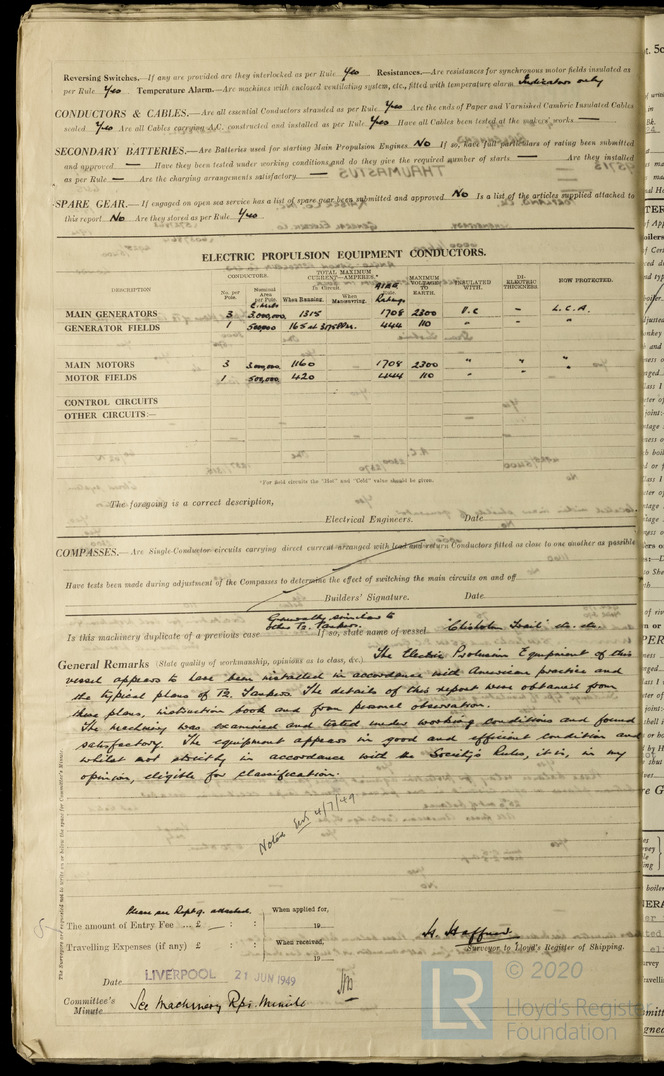 Reversing Switches.—If any are provided are they interlocked as per Rule Yes Resistances.—Are resistances for synchronous motor fields insulated as
per Rule Yes Temperature Alarm.—Are machines with enclosed ventilating system, etc., fitted with temperature alarm Indicators only
CONDUCTORS & CABLES.—Are all essential Conductors stranded as per Rule Yes Are the ends of Paper and Varnished Cambric Insulated Cables
sealed Yes Are all Cables carrying A.C. constructed and installed as per Rule Yes Have all Cables been tested at the makers' works —
SECONDARY BATTERIES.—Are Batteries used for starting Main Propulsion Engines No If so, have full particulars of rating been submitted
and approved — Have they been tested under working conditions and do they give the required number of starts — Are they installed
as per Rule — Are the charging arrangements satisfactory —
SPARE GEAR.—If engaged on open sea service has a list of spare gear been submitted and approved No Is a list of the articles supplied attached to
this report No Are they stored as per Rule Yes
ELECTRIC PROPULSION EQUIPMENT CONDUCTORS.
DESCRIPTION CONDUCTORS. No. per Pole. Nominal Area per Pole. TOTAL MAXIMUM CURRENT—AMPERES.* In Circuit. When Running. When Manœuvring. Rule. Ratings MAXIMUM VOLTAGE TO EARTH. INSULATED WITH. DI-ELECTRIC THICKNESS HOW PROTECTED.
MAIN GENERATORS 3 3,000,000 1315 1708 2300 V.C — L.C.A.
GENERATOR FIELDS 1 500,000 165 at 444 110 " "
MAIN MOTORS 3 3,000,000 1160 1708 2300 " " "
MOTOR FIELDS 1 500,000 420 444 110 " "
CONTROL CIRCUITS
OTHER CIRCUITS:—
*For field circuits the "Hot" and "Cold" value should be given.
The foregoing is a correct description,
Electrical Engineers. Date
COMPASSES.—Are Single-Conductor circuits carrying direct current arranged with lead and return Conductors fitted as close to one another as possible
Have tests been made during adjustment of the Compasses to determine the effect of switching the main circuits on and off
Builders' Signature. Date
Generally similar to
other T2. Tankers.
Is this machinery duplicate of a previous case If so, state name of vessel "Chisholm Trail" etc. etc.
General Remarks (State quality of workmanship, opinions as to class, &c.) The Electric Propulsion Equipment of this
vessel appears to have been installed in accordance with American practice and
the typical plans of T2. Tankers. The details of this report were obtained from
these plans, instruction book and from personal observation.
The machinery was examined and tested under working conditions and found
satisfactory. The equipment appears in good and efficient condition and
whilst not strictly in accordance with the Society's Rules, it is, in my
opinion, eligible for classification.
Noted 4/7/49
The Surveyors are requested not to write on or below the space for Committee's Minute.
Please see Rpt 9. attached.
The amount of Entry Fee ... £ — : :
When applied for,
19
Travelling Expenses (if any) £ : :
When received,
19
H. Haffner
Surveyor to Lloyd's Register of Shipping.
Date LIVERPOOL 21 JUN 1949
Committee's
Minute See Machinery Rpt. Minute
LR © 2020
Lloyd's Register
Foundation